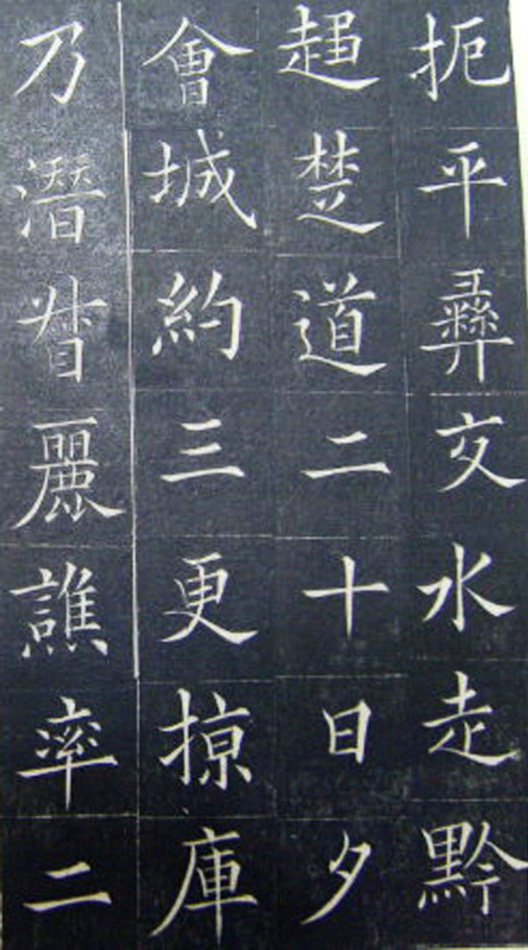 扼平彝交水走黔
趨楚道二十日夕
會城約三更掠庫
乃潛督麗譙率二